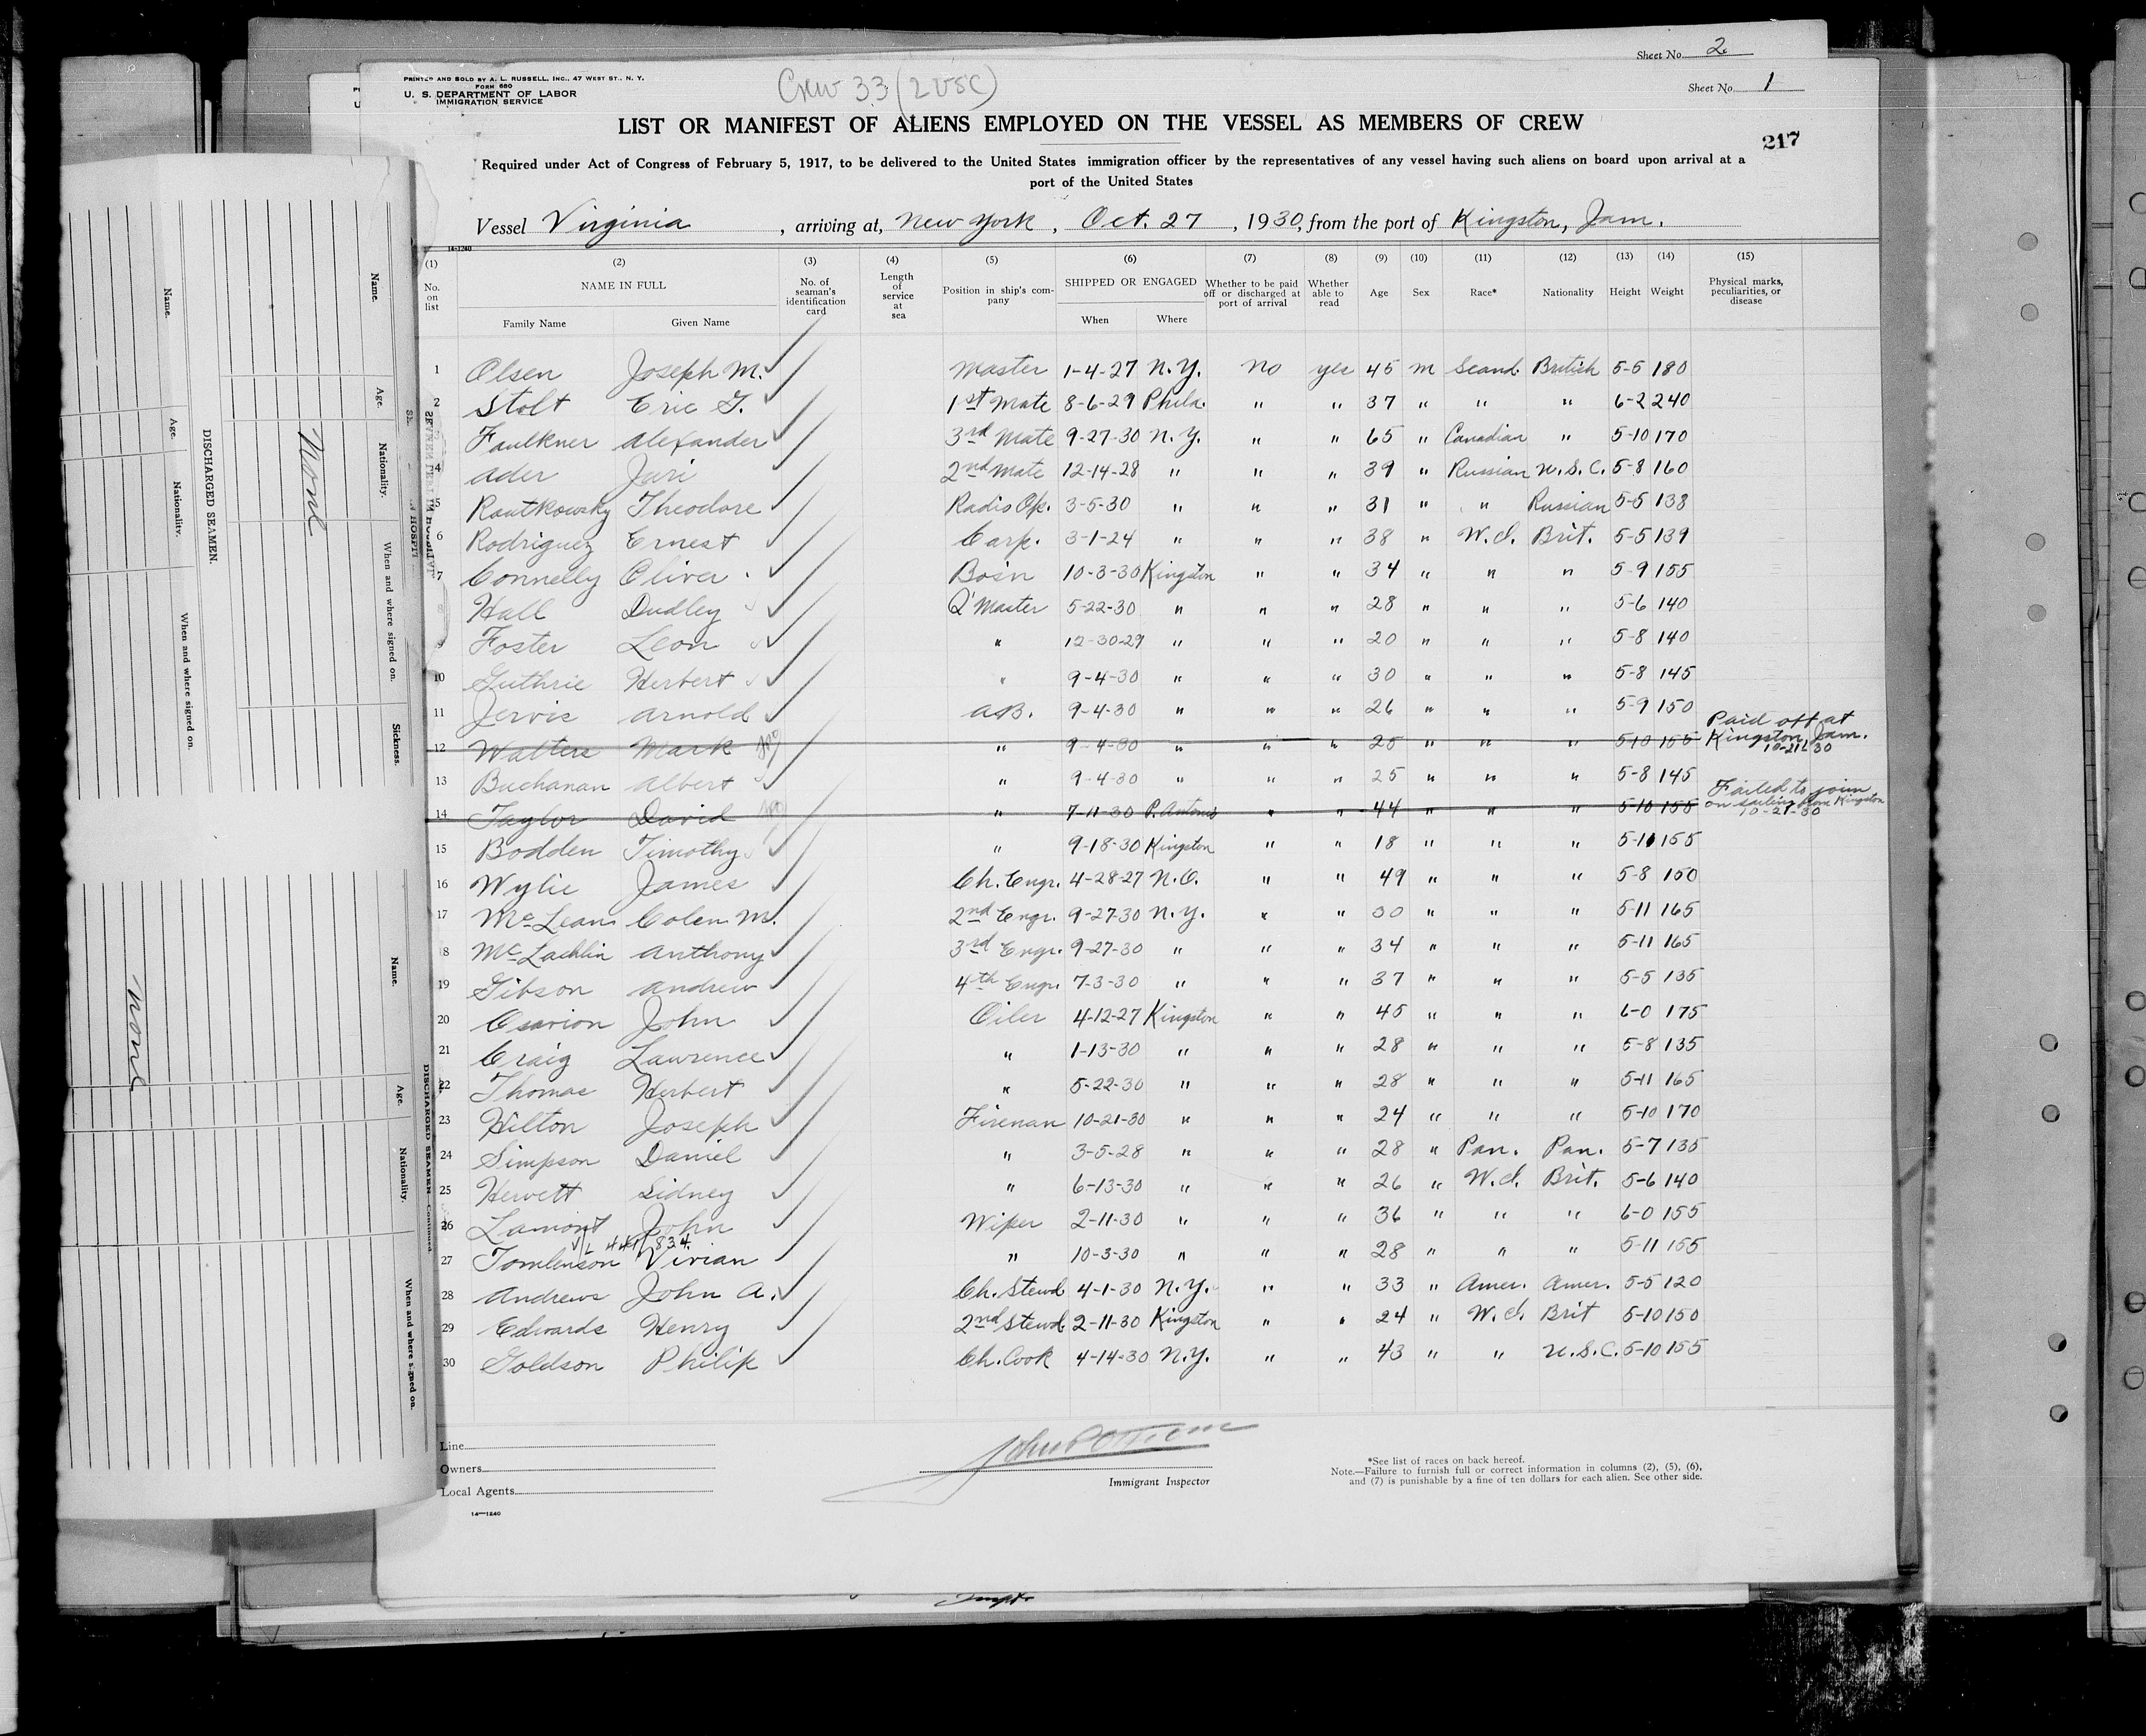 Sheet No. 2
PRINTED AND SOLD BY A. L. RUSSELL, INC., 47 WEST ST., N. Y.
FORM 680
U. S. DEPARTMENT OF LABOR
IMMIGRATION SERVICE
Crew 33 (2 USC)
Sheet No. 1
LIST OR MANIFEST OF ALIENS EMPLOYED ON THE VESSEL AS MEMBERS OF CREW
217
Required under Act of Congress of February 5, 1917, to be delivered to the United States immigration officer by the representatives of any vessel having such aliens on board upon arrival at a
port of the United States
Vessel Virginia, arriving at, New York, Oct. 27, 1930, from the port of Kingston, Jam.
14-1240
(1) (2) (3) (4) (5) (6) (7) (8) (9) (10) (11) (12) (13) (14) (15)
No. on list NAME IN FULL Family Name Given Name No. of seaman's identification card Length of service at sea Position in ship's company SHIPPED OR ENGAGED When Where Whether to be paid off or discharged at port of arrival Whether able to read Age Sex Race* Nationality Height Weight Physical marks, peculiarities, or disease
1 Olsen Joseph M. Master 1-4-27 N.Y. No yes 45 m Scand. British 5-5 180
2 Stolt Eric G. 1st Mate 8-6-29 Phila. " " 37 " " " 6-2 240
3 Faulkner Alexander 3rd Mate 9-27-30 N.Y. " " 65 " Canadian " 5-10 170
4 Ader Juri 2nd Mate 12-14-28 " " " 39 " Russian U.S.C. 5-8 160
5 Rautkowsky Theodore Radio Op. 3-5-30 " " " 31 " " Russian 5-5 138
6 Rodriguez Ernest Carp. 3-1-24 " " " 38 " W.I. Brit. 5-5 139
7 Connelly Oliver Bos'n 10-3-30 Kingston " " 34 " " " 5-9 155
8 Hall Dudley Q'Master 5-22-30 " " " 28 " " " 5-6 140
9 Foster Leon " 12-30-29 " " " 20 " " " 5-8 140
10 Guthrie Herbert " 9-4-30 " " " 30 " " " 5-8 145
11 Jervis Arnold A.B. 9-4-30 " " " 26 " " " 5-9 150
12 Walters Mark " 9-4-30 " " " 25 " " " 5-10 155 Paid off at Kingston, Jam. 10-21-30
13 Buchanan Albert " 9-4-30 " " " 25 " " " 5-8 145
14 Taylor David " 7-11-30 P. Antonio " " 44 " " " 5-10 155 Failed to join on sailing from Kingston 10-21-30
15 Bodden Timothy " 9-18-30 Kingston " " 18 " " " 5-11 155
16 Wylie James Ch. Engr. 4-28-27 N.O. " " 49 " " " 5-8 150
17 McLean Colen M. 2nd Engr. 9-27-30 N.Y. " " 30 " " " 5-11 165
18 McLachlin Anthony 3rd Engr. 9-27-30 " " " 34 " " " 5-11 165
19 Gibson Andrew 4th Engr. 7-3-30 " " " 37 " " " 5-5 135
20 Osarion John Oiler 4-12-27 Kingston " " 45 " " " 6-0 175
21 Craig Lawrence " 1-13-30 " " " 28 " " " 5-8 135
22 Thomas Herbert " 5-22-30 " " " 28 " " " 5-11 165
23 Hilton Joseph Fireman 10-21-30 " " " 24 " " " 5-10 170
24 Simpson Daniel " 3-5-28 " " " 28 " Pan. Pan. 5-7 135
25 Hewett Sidney " 6-13-30 " " " 26 " W.I. Brit. 5-6 140
26 Lamont John Wiper 2-11-30 " " " 36 " " " 6-0 155
27 Tomlenson Vivian " 10-3-30 " " " 28 " " " 5-11 155
28 Andrews John A. Ch. Stewd 4-1-30 N.Y. " " 33 " Amer. Amer. 5-5 120
29 Edwards Henry 2nd Stewd. 2-11-30 Kingston " " 24 " W.I. Brit 5-10 150
30 Goldson Philip Ch. Cook 4-14-30 N.Y. " " 43 " " U.S.C. 5-10 155
Line
Owners
Local Agents
14—1240
Immigrant Inspector
*See list of races on back hereof.
Note.—Failure to furnish full or correct information in columns (2), (5), (6),
and (7) is punishable by a fine of ten dollars for each alien. See other side.
Name. Age. Nationality. When and where signed on. Sickness.
None
DISCHARGED SEAMEN.
Name. Age. Nationality. When and where signed on.
DISCHARGED SEAMEN—Continued.
Name. Age. Nationality. When and where signed on.
None